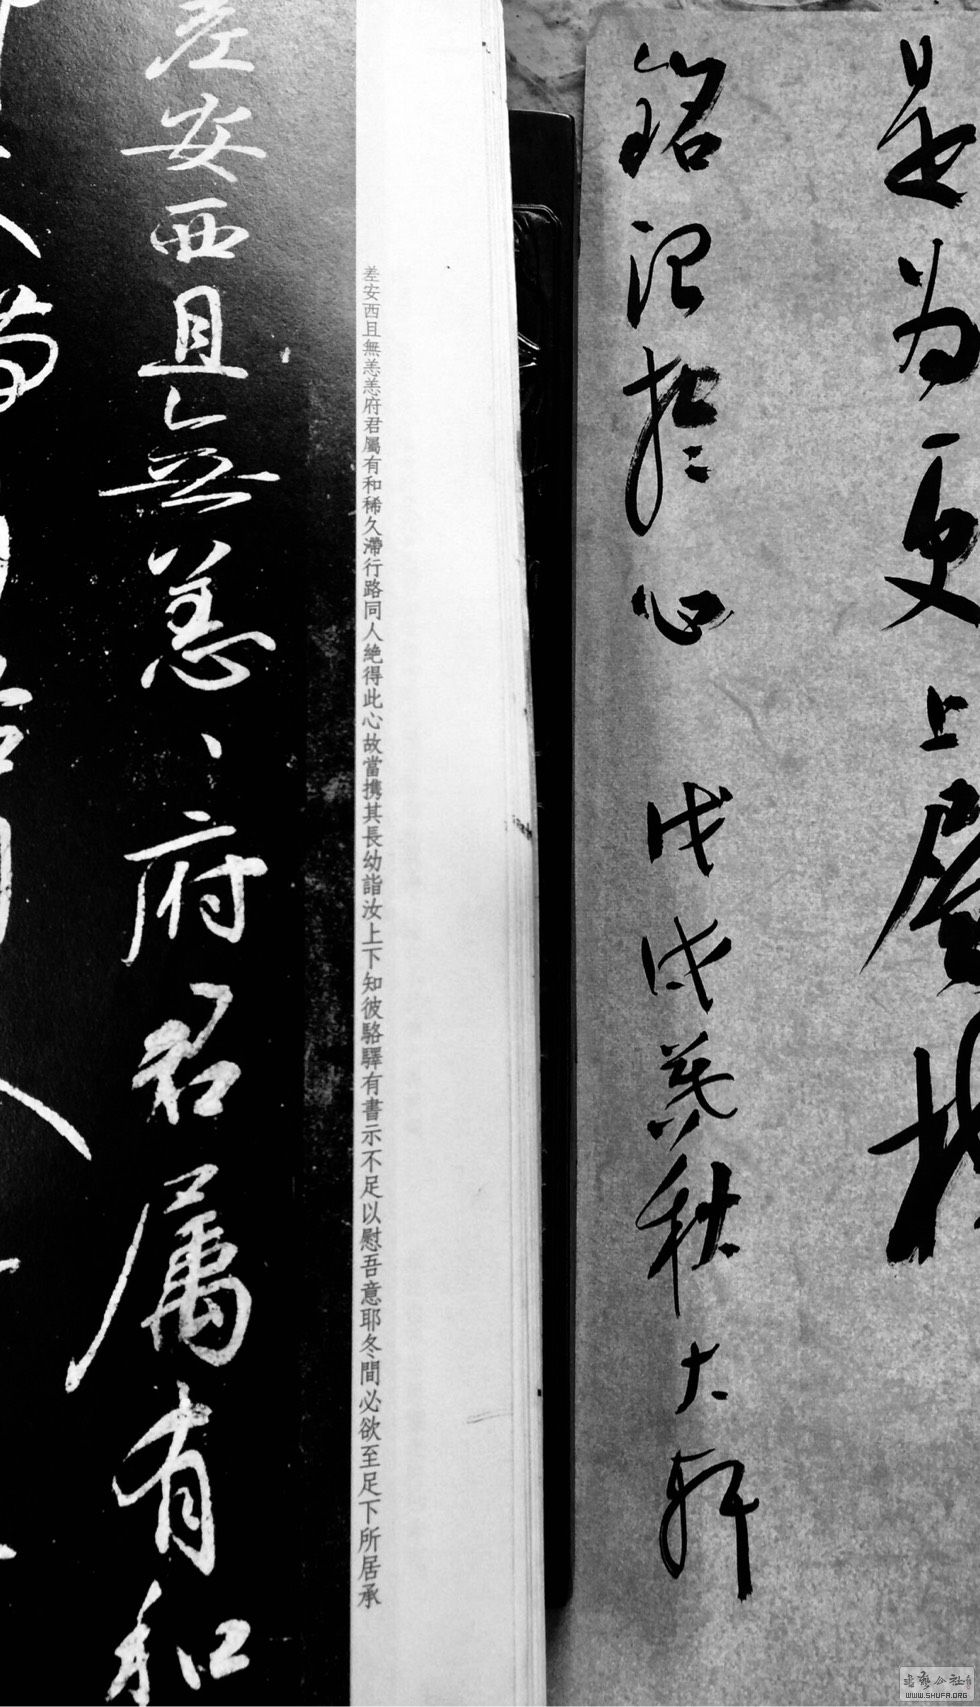 是为更上层
铭记于心 戊戌暮秋大轩
差安西且無恙恙府君屬有和稀久滯行路同人絶得此心故當携其長幼詣汝上下知彼駱驛有書示不足以慰吾意耶冬間必欲至足下所居承
差安西且無恙〻府君屬有和
WWW.SHUFA.ORG